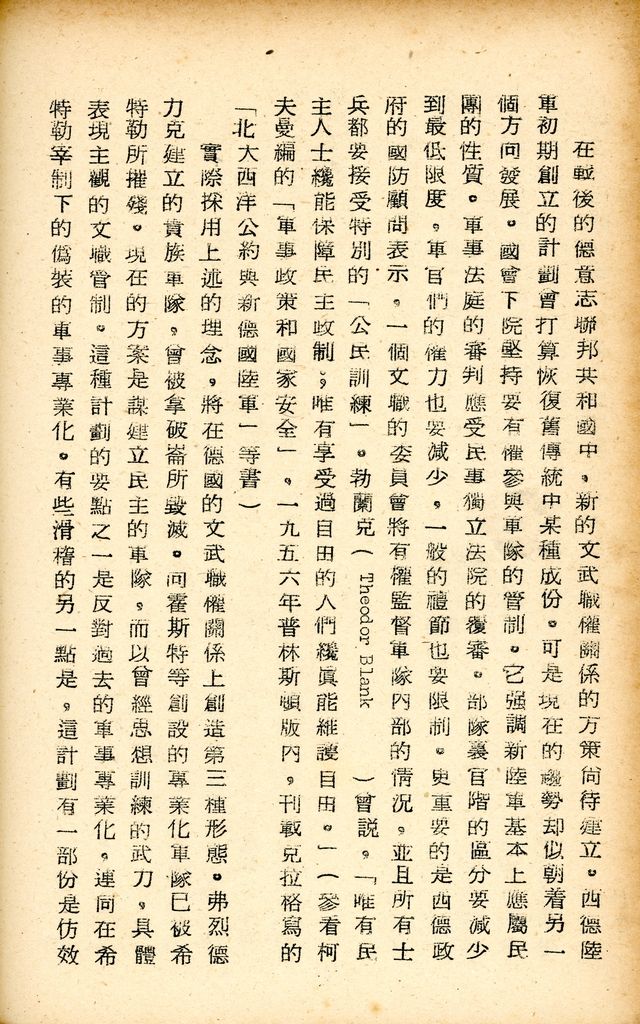 在戰後的德意志聯邦共和國中，新的文武職權關係的方策尙待建立。西德陸
軍初期創立的計劃會打算恢復舊傳統中某種成份。可是現在的趨勢却似朝着另一
個方向發展。國會下院堅持要有權參與軍隊的管制。它强調新陸軍基本上應屬民
團的性質。軍事法庭的審判應受民事獨立法院的覆審。部隊裏官階的區分要減少
到最低限度，軍官們的權力也要減少，一般的禮節也要限制。更重要的是西德政
府的國防顧問表示，一個文職的委員會將有權監督軍隊內部的情況，並且所有士
兵都要接受特別的「公民訓練」。勃蘭克（Theodor Blank）曾説，「唯有民
主人士纔能保障民主政制，唯有享受過自由的人們纔眞能維護自由。」（參看柯
夫曼編的「軍事政策和國家安全」。一九五六年普林斯頓版內，刊載克拉格寫的
「北大西洋公約與新德國陸軍」等書）
實際採用上述的理念，將在德國的文武職權關係上創造第三種形態。弗烈德
力克建立的貴族軍隊，曾被拿破崙所毀滅。向霍斯特等創設的專業化軍隊已被希
特勒所摧殘。現在的方案是謀建立民主的軍隊，而以曾經思想訓練的武力，具體
表現主觀的文職管制。這種計劃的要點之一是反對過去的軍事專業化。連同在希
特勒宰制下的僞裝的軍事專業化。有些滑稽的另一點是，這計劃有一部份是仿效